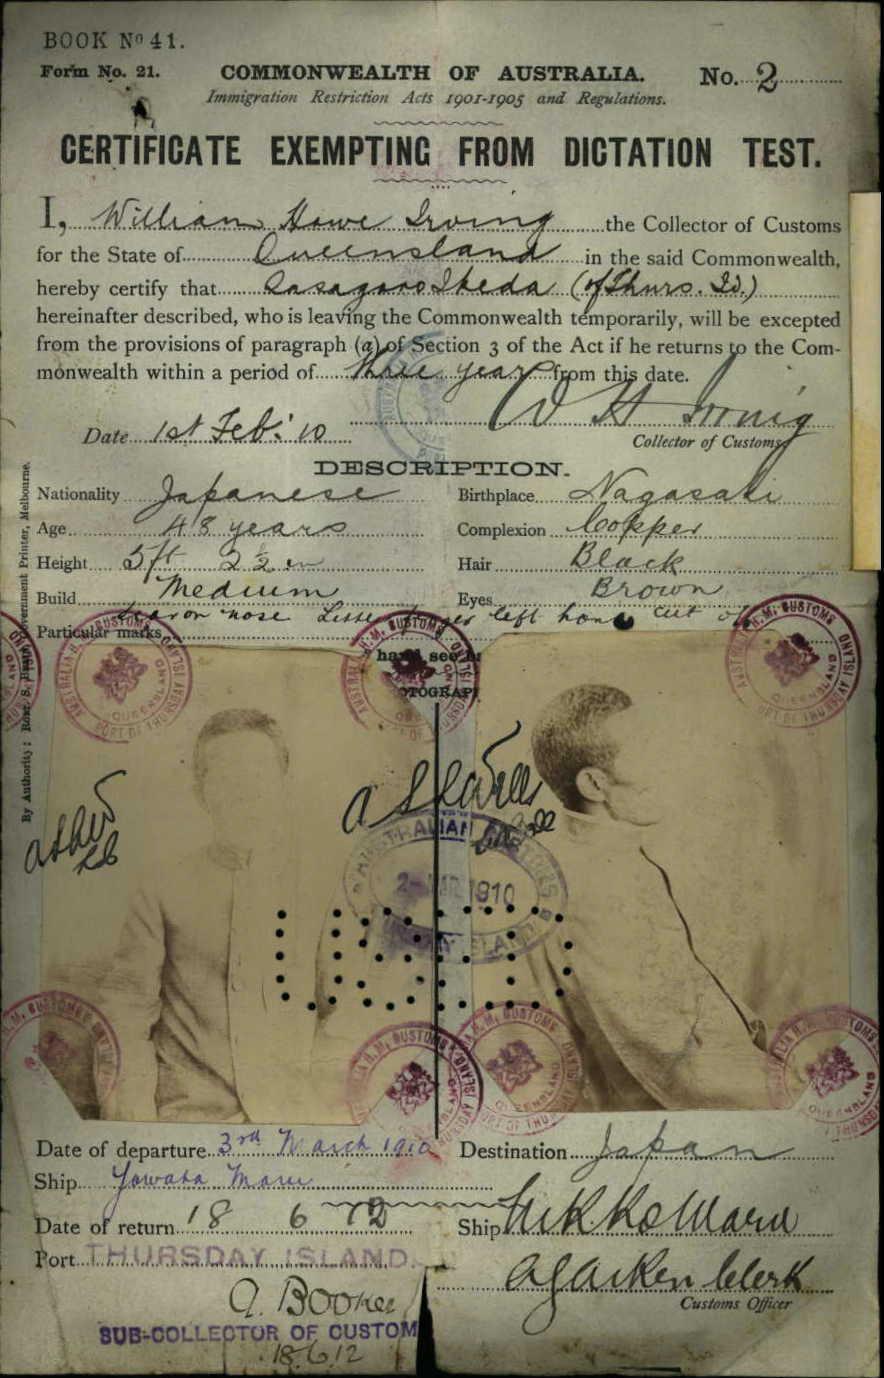 BOOK No 41.
Form No. 21. COMMONWEALTH OF AUSTRALIA. No. 2
Immigration Restriction Acts 1901-1905 and Regulations.
CERTIFICATE EXEMPTING FROM DICTATION TEST.
I, William Howe Irving the Collector of Customs
for the State of Queensland in the said Commonwealth,
hereby certify that Sasagoro Ikeda (of Thurs. Id.)
hereinafter described, who is leaving the Commonwealth temporarily, will be excepted
from the provisions of paragraph (a) of Section 3 of the Act if he returns to the Com-
monwealth within a period of three years from this date.
W H Irving
Date 1st Feb. '10 Collector of Customs
DESCRIPTION.
Nationality Japanese Birthplace Nagasaki
Age 48 years Complexion Copper
Height 5ft 2½ in Hair Black
Build Medium Eyes Brown
Particular marks Scar on nose Little finger left hand cut off
PHOTOGRAPH
2 - MAR 1910
Date of departure 3rd March 1910 Destination Japan
Ship Yawata Maru
Date of return 18 6 12 Ship Nikko Maru
Port THURSDAY ISLAND.
Clerk
Customs Officer
SUB-COLLECTOR OF CUSTOM
18.6.12
By Authority: Government Printer, Melbourne.